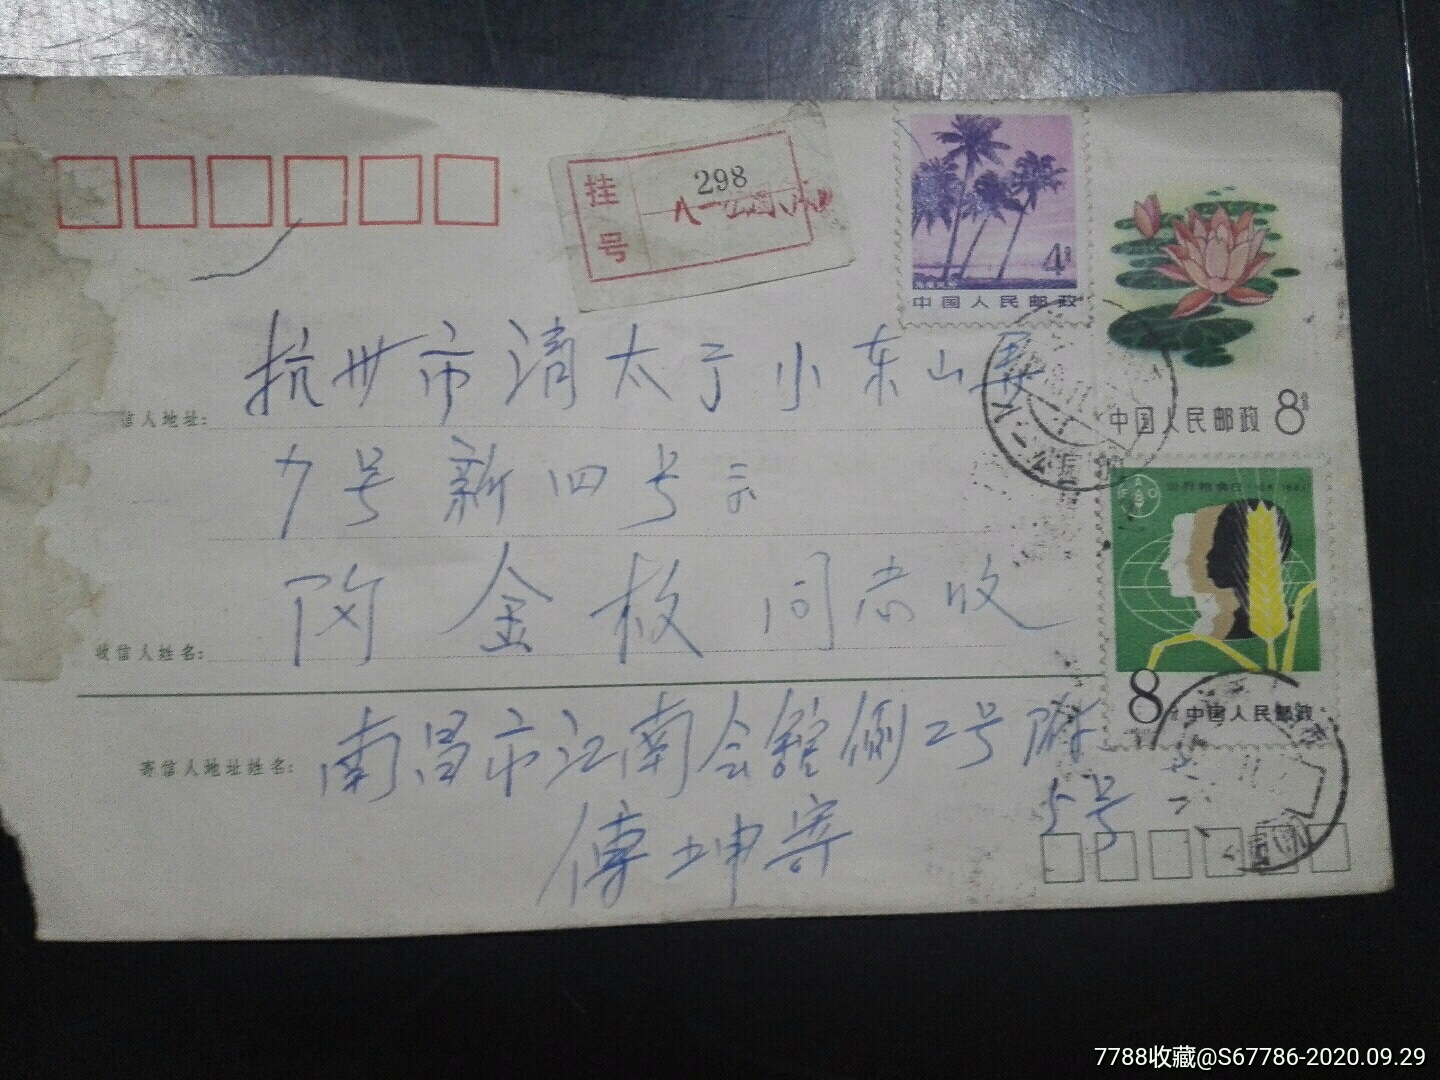 挂号
298
4分
中国人民邮政
中国人民邮政 8分
杭州市清太丁小东山弄
信人地址:
7号新四号
FAO
金枚同志收
收信人姓名:
8分 中国人民邮政
南昌市江南会馆侧2号附
寄信人地址姓名:
5号
傅坤寄
7788收藏@S67786-2020.09.29